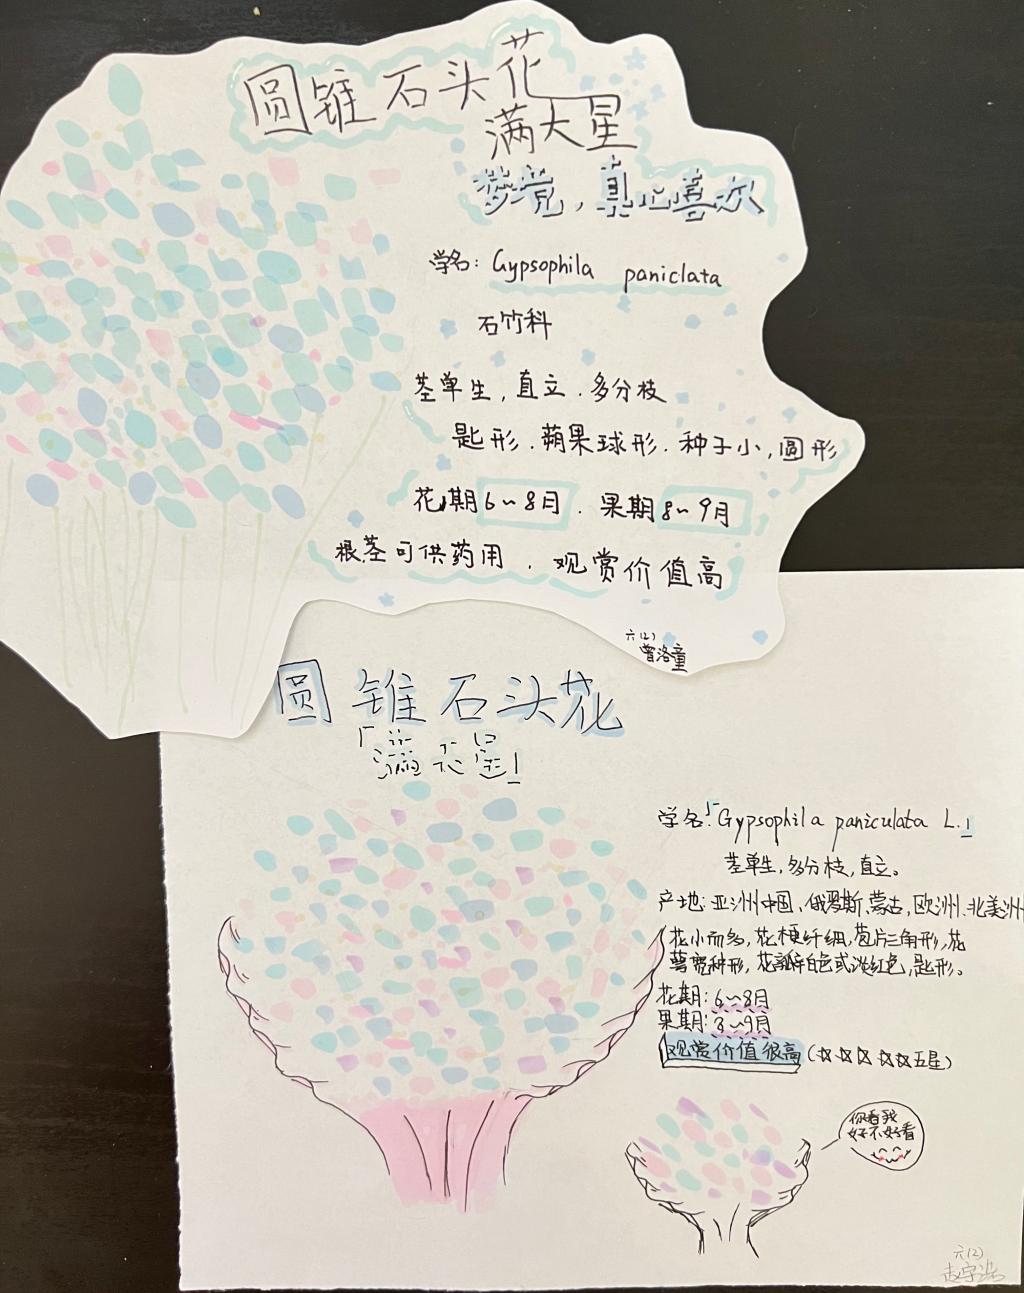 圆锥石头花
满天星
梦境，真心喜欢
学名：Gypsophila paniclata
石竹科
茎单生，直立．多分枝
匙形．蒴果球形．种子小，圆形
花期6～8月．果期8～9月
根茎可供药用．观赏价值高
六(2)
曾洛童
圆锥石头花
「满天星」
学名：「Gypsophila paniculata L.」
茎单生，多分枝，直立。
产地：亚洲中国、俄罗斯、蒙古，欧洲、北美洲
花小而多，花梗纤细，苞片三角形，花
萼宽钟形，花瓣白色或淡红色，匙形。
花期：6～8月
果期：8～9月
观赏价值很高（☆☆☆☆☆五星）
你看我
好不好看
六(2)